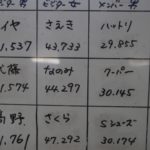 ビジター 女 メンバー 男
イヤ さえき ハットリ
1,537 43,733 29.855
藤 なのみ クーパー
1,574 44,297 30.145
高野 さくら Sシューズ
1,761 47.292 30.174